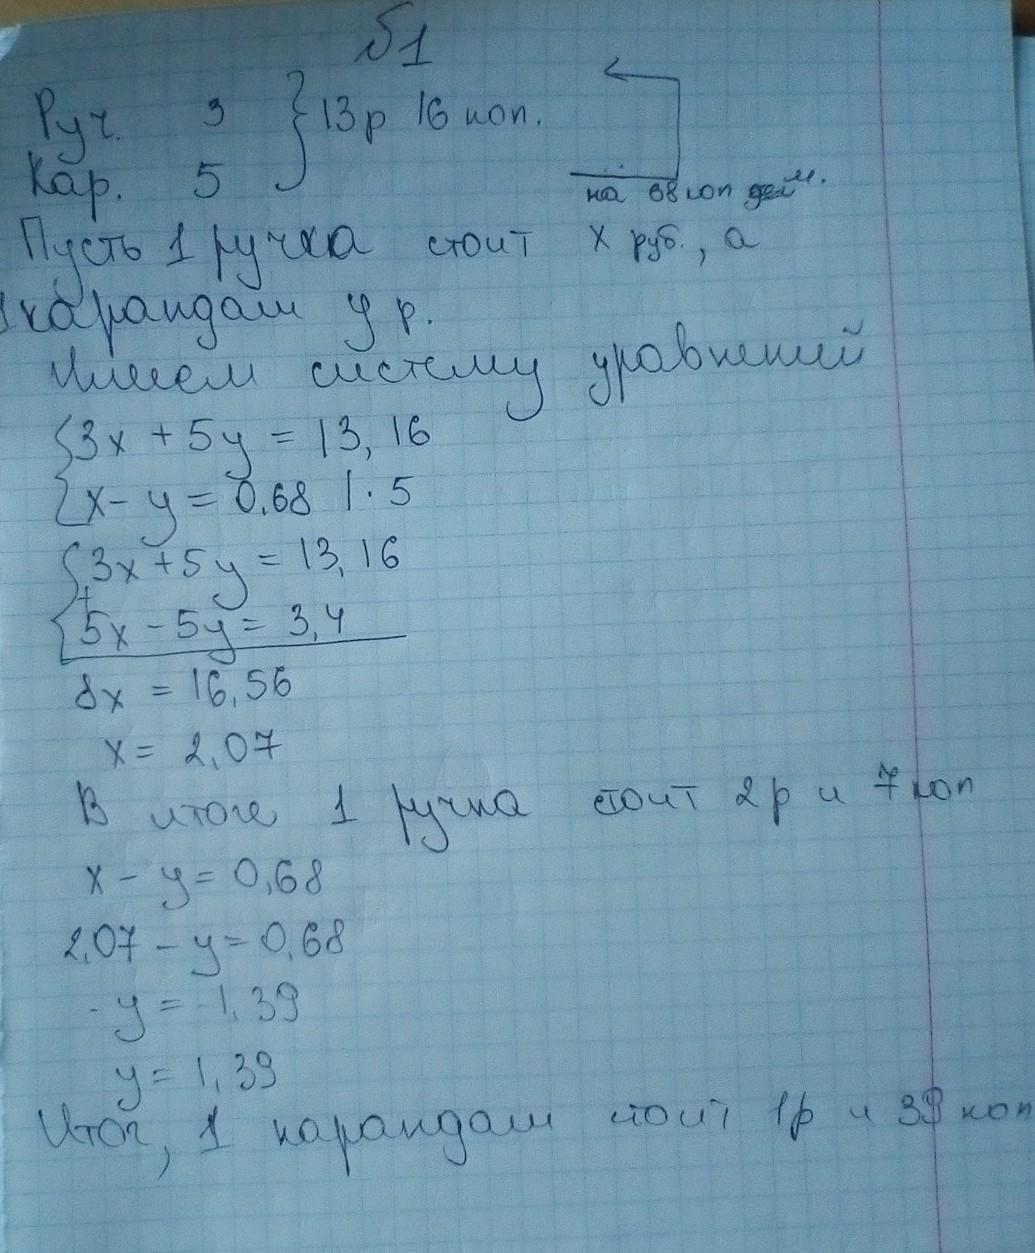 №1
Руч. 3 } 13р 16 коп.
Кар. 5
на 68 коп деш.
Пусть 1 ручка стоит x руб., а
1 карандаш y р.
Имеем систему уравнений
{3x + 5y = 13,16
x - y = 0,68 | · 5
{3x + 5y = 13,16
+
5x - 5y = 3,4
8x = 16,56
x = 2,07
В итоге 1 ручка стоит 2р и 7 коп
x - y = 0,68
2,07 - y = 0,68
-y = -1,39
y = 1,39
Итог, 1 карандаш стоит 1р и 39 коп